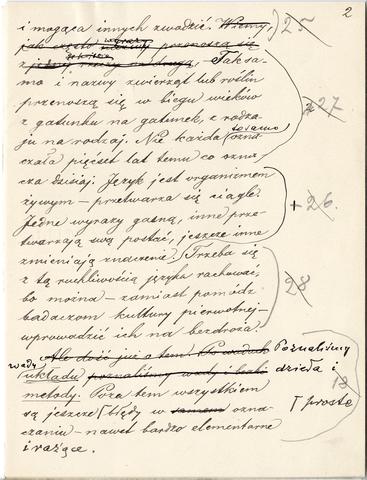 2
25
i mogąca innych zwodzić. Wiemy,
jak często wyrazy przenoszą się
z jednej na drugą. Tak sa-
mo i nazwy zwierząt lub roślin
przenoszą się w biegu wieków
z gatunku na gatunek, z rodza-
27
ju na rodzaj. Nie każda to samo ozna-
czała pięćset lat temu co ozna-
cza dzisiaj. Język jest organizmem
żywym – przetwarza się ciągle.
+ 26.
Jedne wyrazy gasną, inne prze-
twarzają swą postać, jeszcze inne
zmieniają znaczenie. Trzeba się
z tą ruchliwością języka rachować,
28
bo można – zamiast pomódz
badaczom kultury pierwotnej –
wprowadzić ich na bezdroża.
Ale dość już o tem. Poznaliśmy
wady układu poznaliśmy wady i braki dzieła i
metody. Poza tem wszystkiem
18
są jeszcze błędy w samem ozna- proste
czaniu – nawet bardzo elementarne
i rażące.